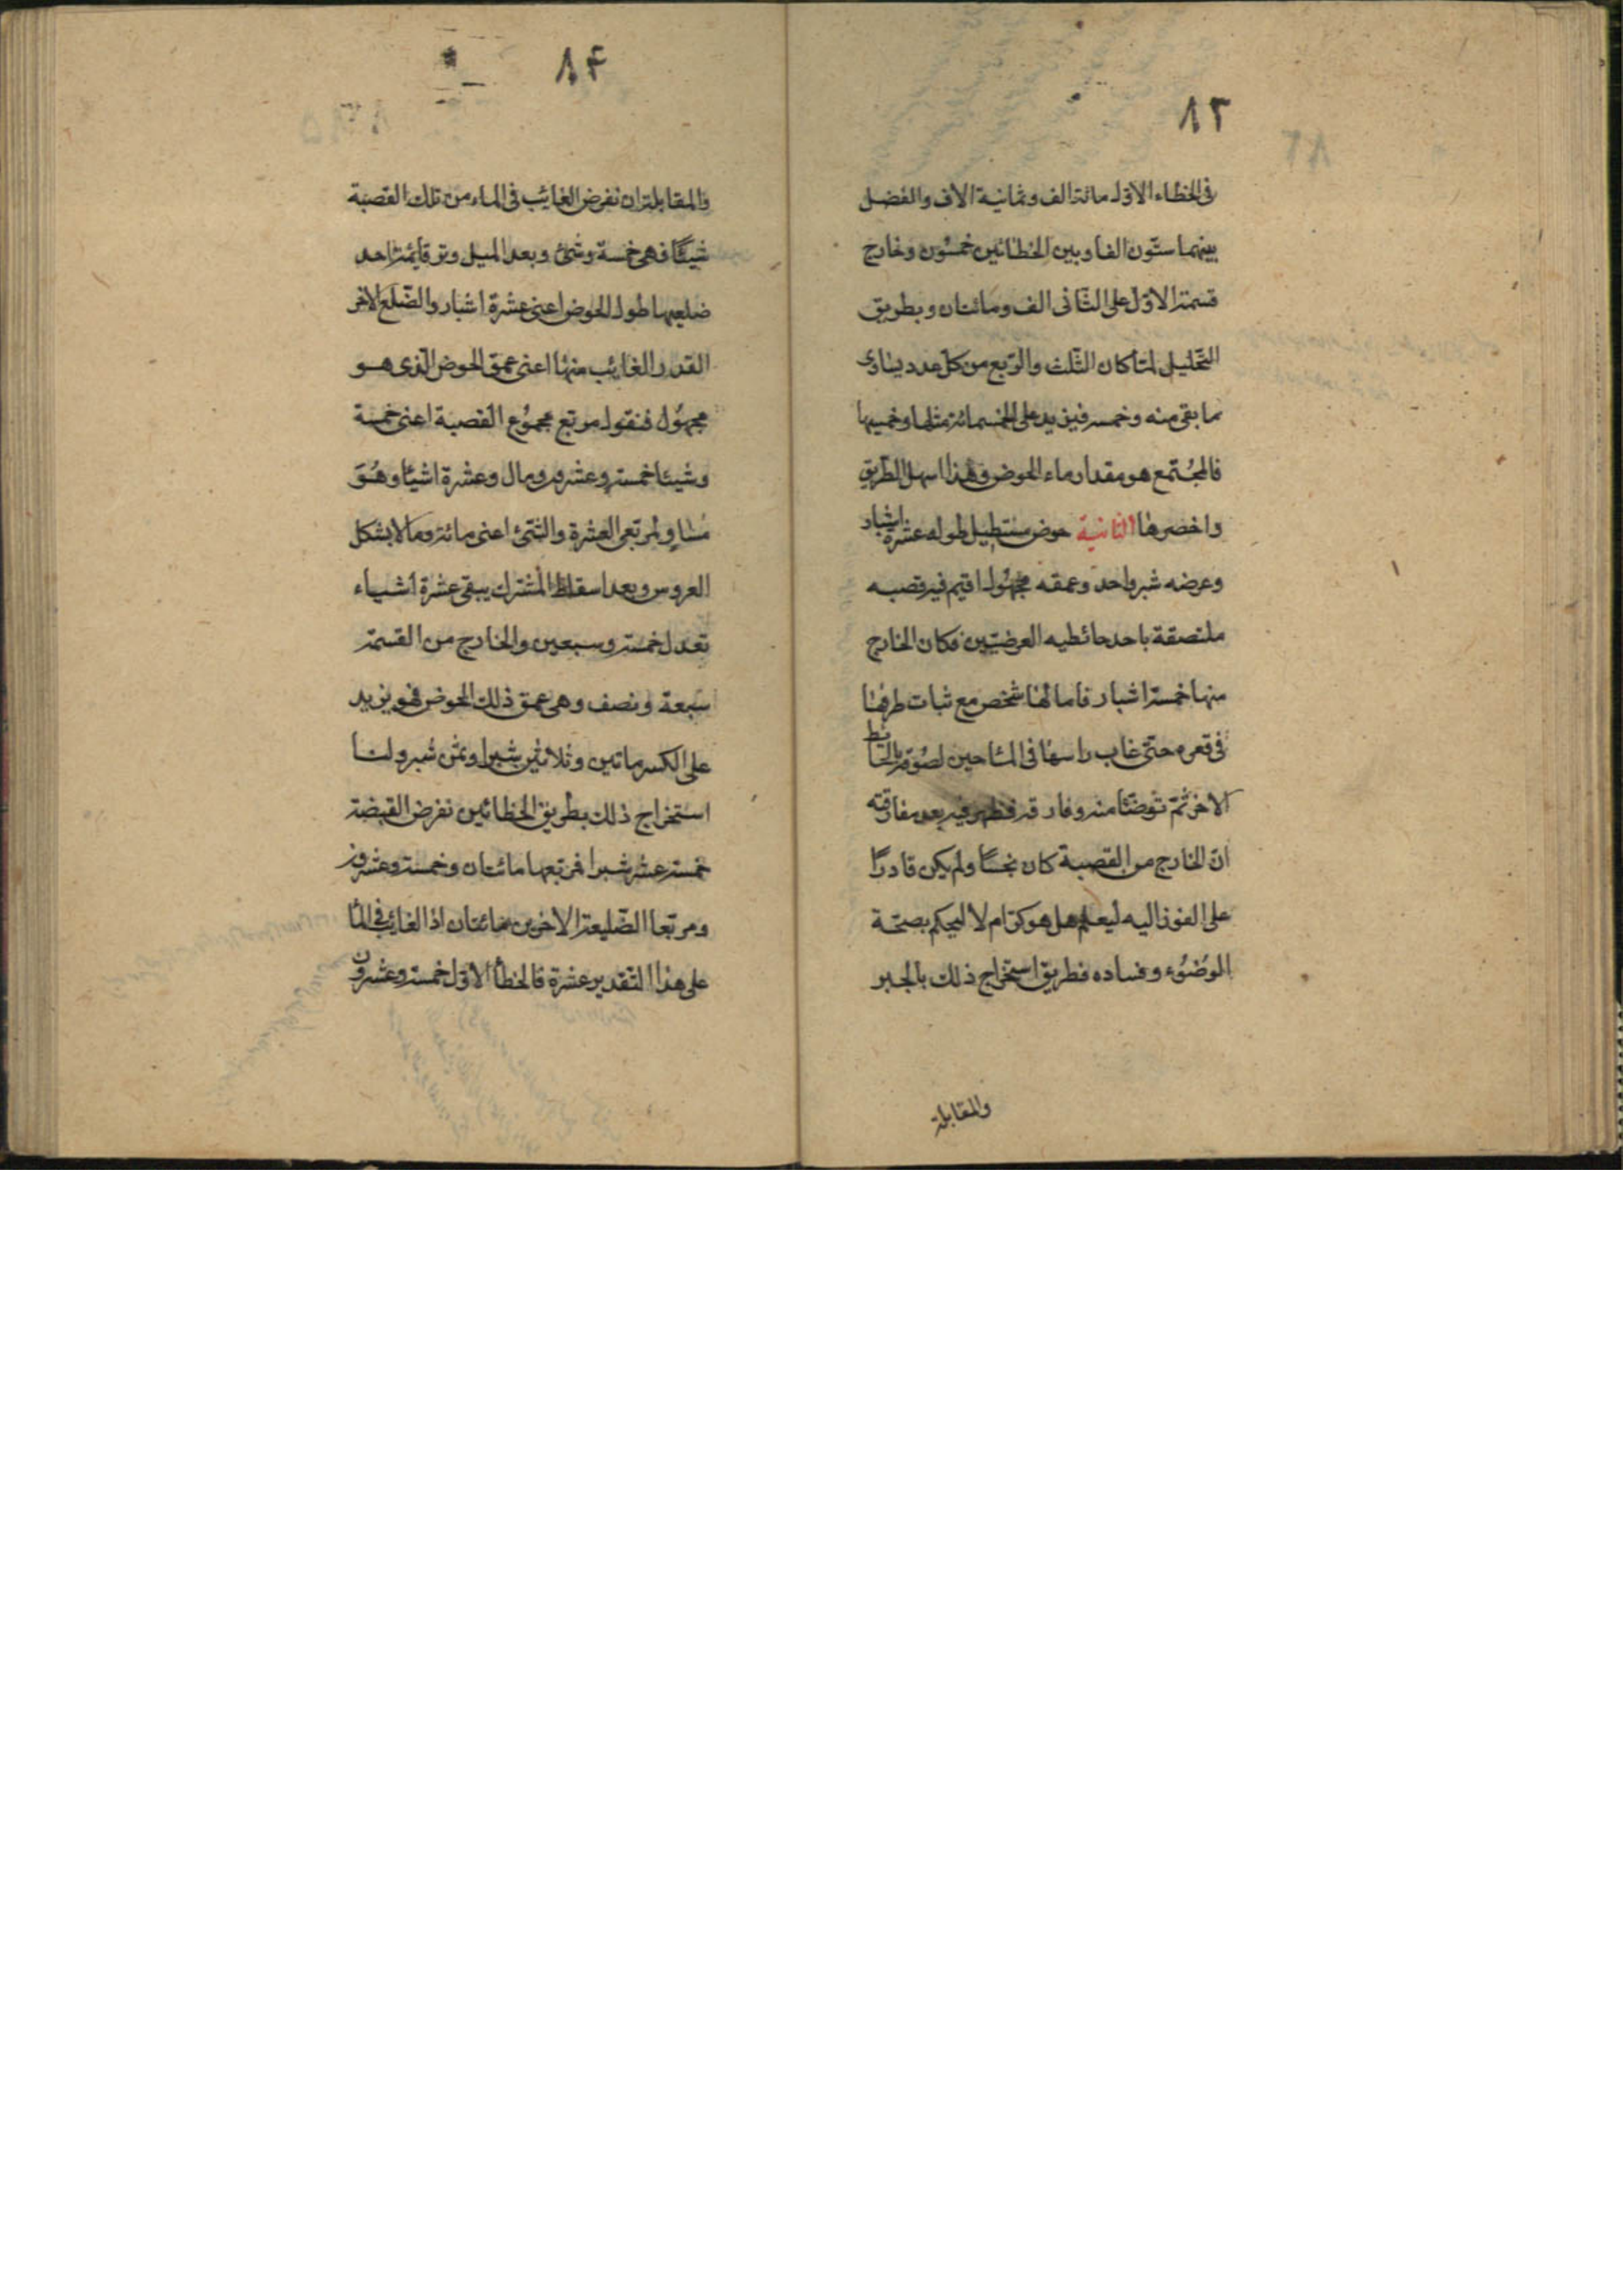 ٨٣
فى الخطاء الاوّل مائة الف وثمانية الاف والفضل
بينهما ستّون الفا وبين الخطائين خمسُون وخارج
قسمة الاوّل على الثّانى الف ومائتان وبطريق
التّحليل لمّا كان الثّلث والرّبع من كلّ عدد يساوى
ما بقى منه وخمسه فيزيد على الخمسمائة مثلها وخمسيها
فالمجُتمع هو مقدار ماء الحوض وهٰذا اسهل الطّريق
واخصرها الثانية حوض مستطيل طوله عشرة اشبار
وعرضه شبر واحد وعمقه مجهُول اقيم فيه قصبه
ملتصقة باحد حائطيه العرضيّين فكان الخارج
منها خمسة اشبار فامالها شخص مع ثبات طرفها
فى قعره حتّى غاب راسها فى الماء حين لصُوقه بالحائط
الاخر ثمّ توضّئا منه وفارقه فظهر فيه بعد مفارقته
انّ الخارج من القصبة كان نجسًا ولم يكن قادرًا
على الفوز اليه ليعلم هل هو كرّام لا ليحكم بصحّة
الوُضُوء وفساده فطريق استخراج ذلك بالجبر
والمقابلة
٨٤
والمقابلة ان نفرض الغائب فى الماء من تلك القصبة
شيئًا فهى خمسة وشئ وبعد الميل وتر قائمة احد
ضلعيها طول الحوض اعنى عشرة اشبار والضّلع الاخر
القدر الغائب منها اعنى عمق الحوض الّذى هو
مجهُول فنقول مربّع مجموُع القصبة اعنى خمسة
وشيئا خمسة وعشرون ومال وعشرة اشياء وهُوَ
مُساوٍ لمربّعى العشرة والشّئ اعنى مائة ومالا بشكل
العروس وبعد اسقاط المشترك يبقى عشرة اشياء
تعدل خمسة وسبعين والخارج من القسمة
سبعة ونصف وهى عمق ذلك الحوض فهو يزيد
على الكسر ماتين وثلاثين شبرا وثمن شبر ولنا
استخراج ذلك بطريق الخطائين نفرض القبضة
خمسة عشر شبرا فمربّعها مائتان وخمسة وعشرون
ومربّعا الضّليعة الاخرين مائتان اذ الغائب فى الماء
على هذا التّقدير عشرة فالخطأ الاوّل خمسة وعشرون